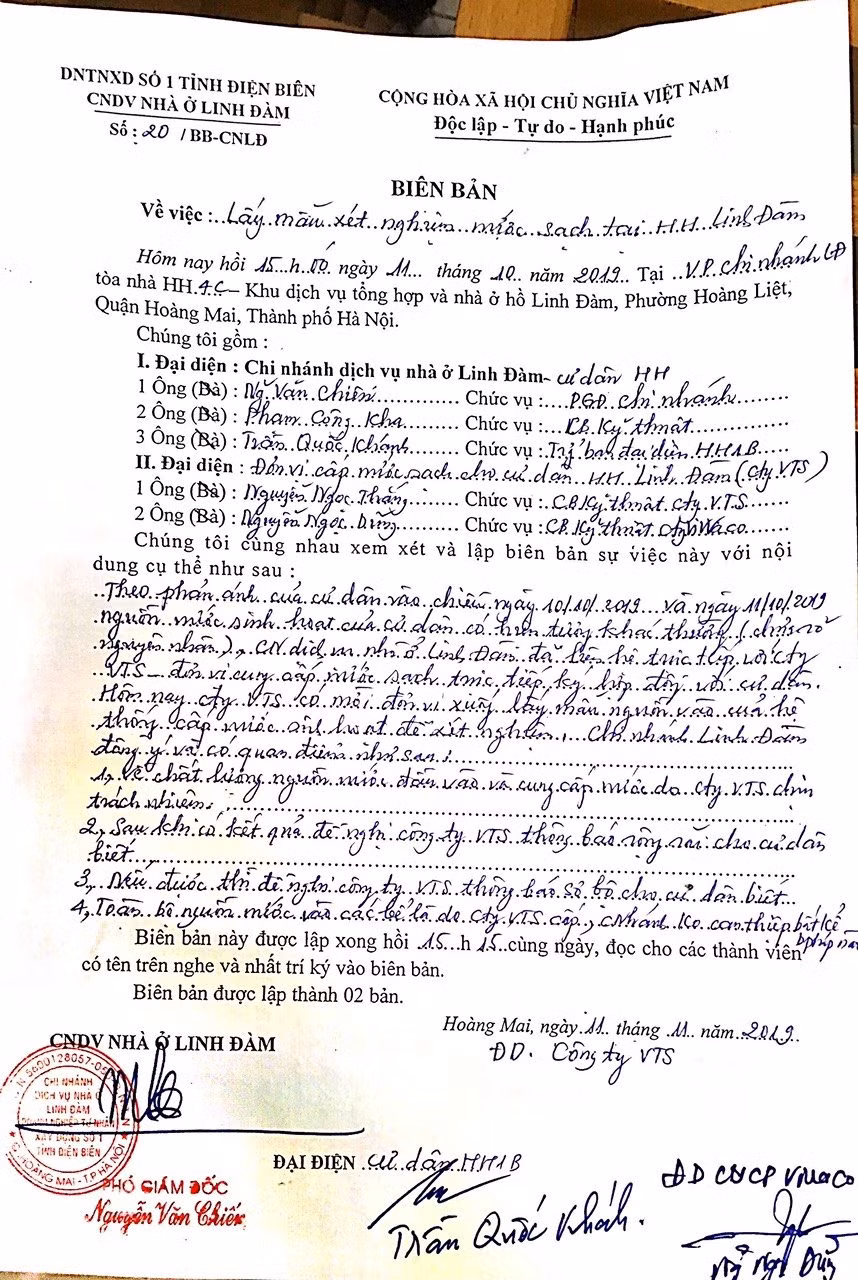 DNTNXD SỐ 1 TỈNH ĐIỆN BIÊN
CNDV NHÀ Ở LINH ĐÀM
Số : 20 / BB-CNLĐ
CỘNG HÒA XÃ HỘI CHỦ NGHĨA VIỆT NAM
Độc lập - Tự do - Hạnh phúc
BIÊN BẢN
Về việc : Lấy mẫu xét nghiệm nước sạch tại HH Linh Đàm
Hôm nay hồi 15 h 00 ngày 11 tháng 10 năm 2019 Tại V.P chi nhánh LĐ
tòa nhà HH 4C – Khu dịch vụ tổng hợp và nhà ở hồ Linh Đàm, Phường Hoàng Liệt,
Quận Hoàng Mai, Thành phố Hà Nội.
Chúng tôi gồm :
I. Đại diện : Chi nhánh dịch vụ nhà ở Linh Đàm - cư dân HH
1 Ông (Bà) : Ng. Văn Chiến Chức vụ : P.GĐ chi nhánh
2 Ông (Bà) : Phạm Công Kha Chức vụ : CB Kỹ thuật
3 Ông (Bà) : Trần Quốc Khánh Chức vụ : Trg ban đại diện HH1B
II. Đại diện : Đơn vị cấp nước sạch cho cư dân HH Linh Đàm (cty VTS)
1 Ông (Bà) : Nguyễn Ngọc Thắng Chức vụ : CB Kỹ thuật cty VTS
2 Ông (Bà) : Nguyễn Ngọc Dũng Chức vụ : CB Kỹ thuật cty Viwaco
Chúng tôi cùng nhau xem xét và lập biên bản sự việc này với nội
dung cụ thể như sau :
Theo phản ánh của cư dân vào chiều ngày 10/10/2019 và ngày 11/10/2019
nguồn nước sinh hoạt của cư dân có hiện tượng khác thường (chưa rõ
nguyên nhân), CN dịch vụ nhà ở Linh Đàm đã liên hệ trực tiếp với cty
VTS - đơn vị cung cấp nước sạch trực tiếp ký hợp đồng với cư dân.
Hôm nay cty VTS có mời đơn vị xuống lấy mẫu nguồn vào của hệ
thống cấp nước sinh hoạt để xét nghiệm, Chi nhánh Linh Đàm
đồng ý và có quan điểm như sau :
1, Về chất lượng nguồn nước đầu vào và cung cấp nước do cty VTS chịu
trách nhiệm.
2, Sau khi có kết quả đề nghị công ty VTS thông báo rộng rãi cho cư dân
biết
3, Nếu được thì đề nghị công ty VTS thông báo sơ bộ cho cư dân biết
4, Toàn bộ nguồn nước vào các bể là do cty VTS cấp, CNhánh Ko can thiệp bất kể
Biên bản này được lập xong hồi 15 h 15 cùng ngày, đọc cho các thành viên
có tên trên nghe và nhất trí ký vào biên bản.
Biên bản được lập thành 02 bản.
Hoàng Mai, ngày 11 tháng 11 năm 2019
CNDV NHÀ Ở LINH ĐÀM
ĐD. Công ty VTS
CHI NHÁNH
DỊCH VỤ NHÀ Ở
LINH ĐÀM
DOANH NGHIỆP TƯ NHÂN
XÂY DỰNG SỐ 1
TỈNH ĐIỆN BIÊN
Q. HOÀNG MAI - T.P HÀ NỘI
PHÓ GIÁM ĐỐC
Nguyễn Văn Chiến
ĐẠI ĐIỆN cư dân HH1B
Trần Quốc Khánh.